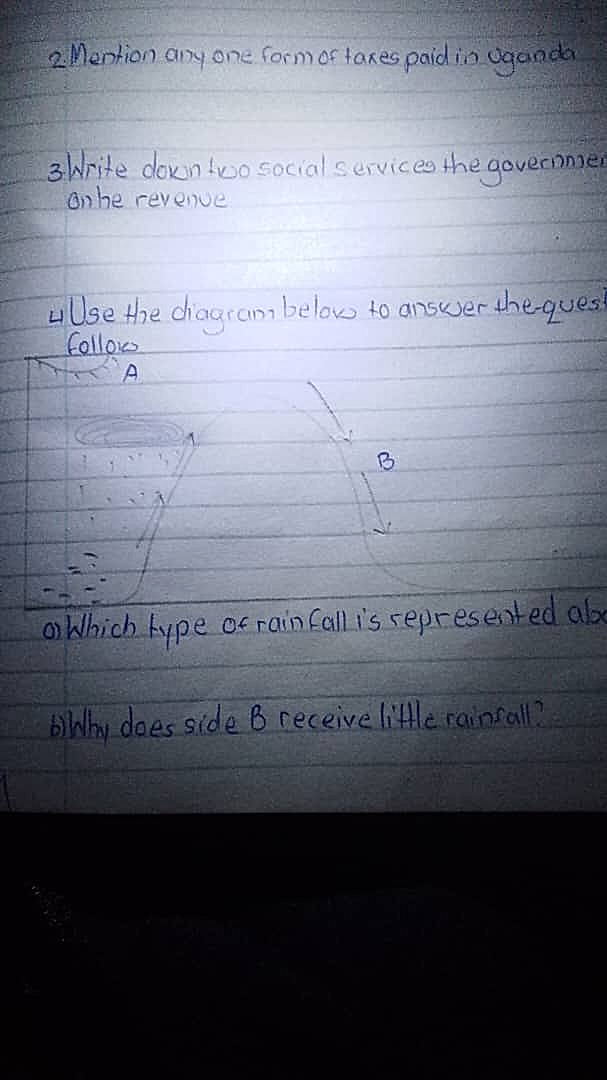 2. Mention any one form of taxes paid in Uganda
3. Write down two social services the governmen
on he revenue
4 Use the diagram below to answer the quest
follow
A
B
a) Which type of rainfall is represented abo
b) Why does side B receive little rainfall?